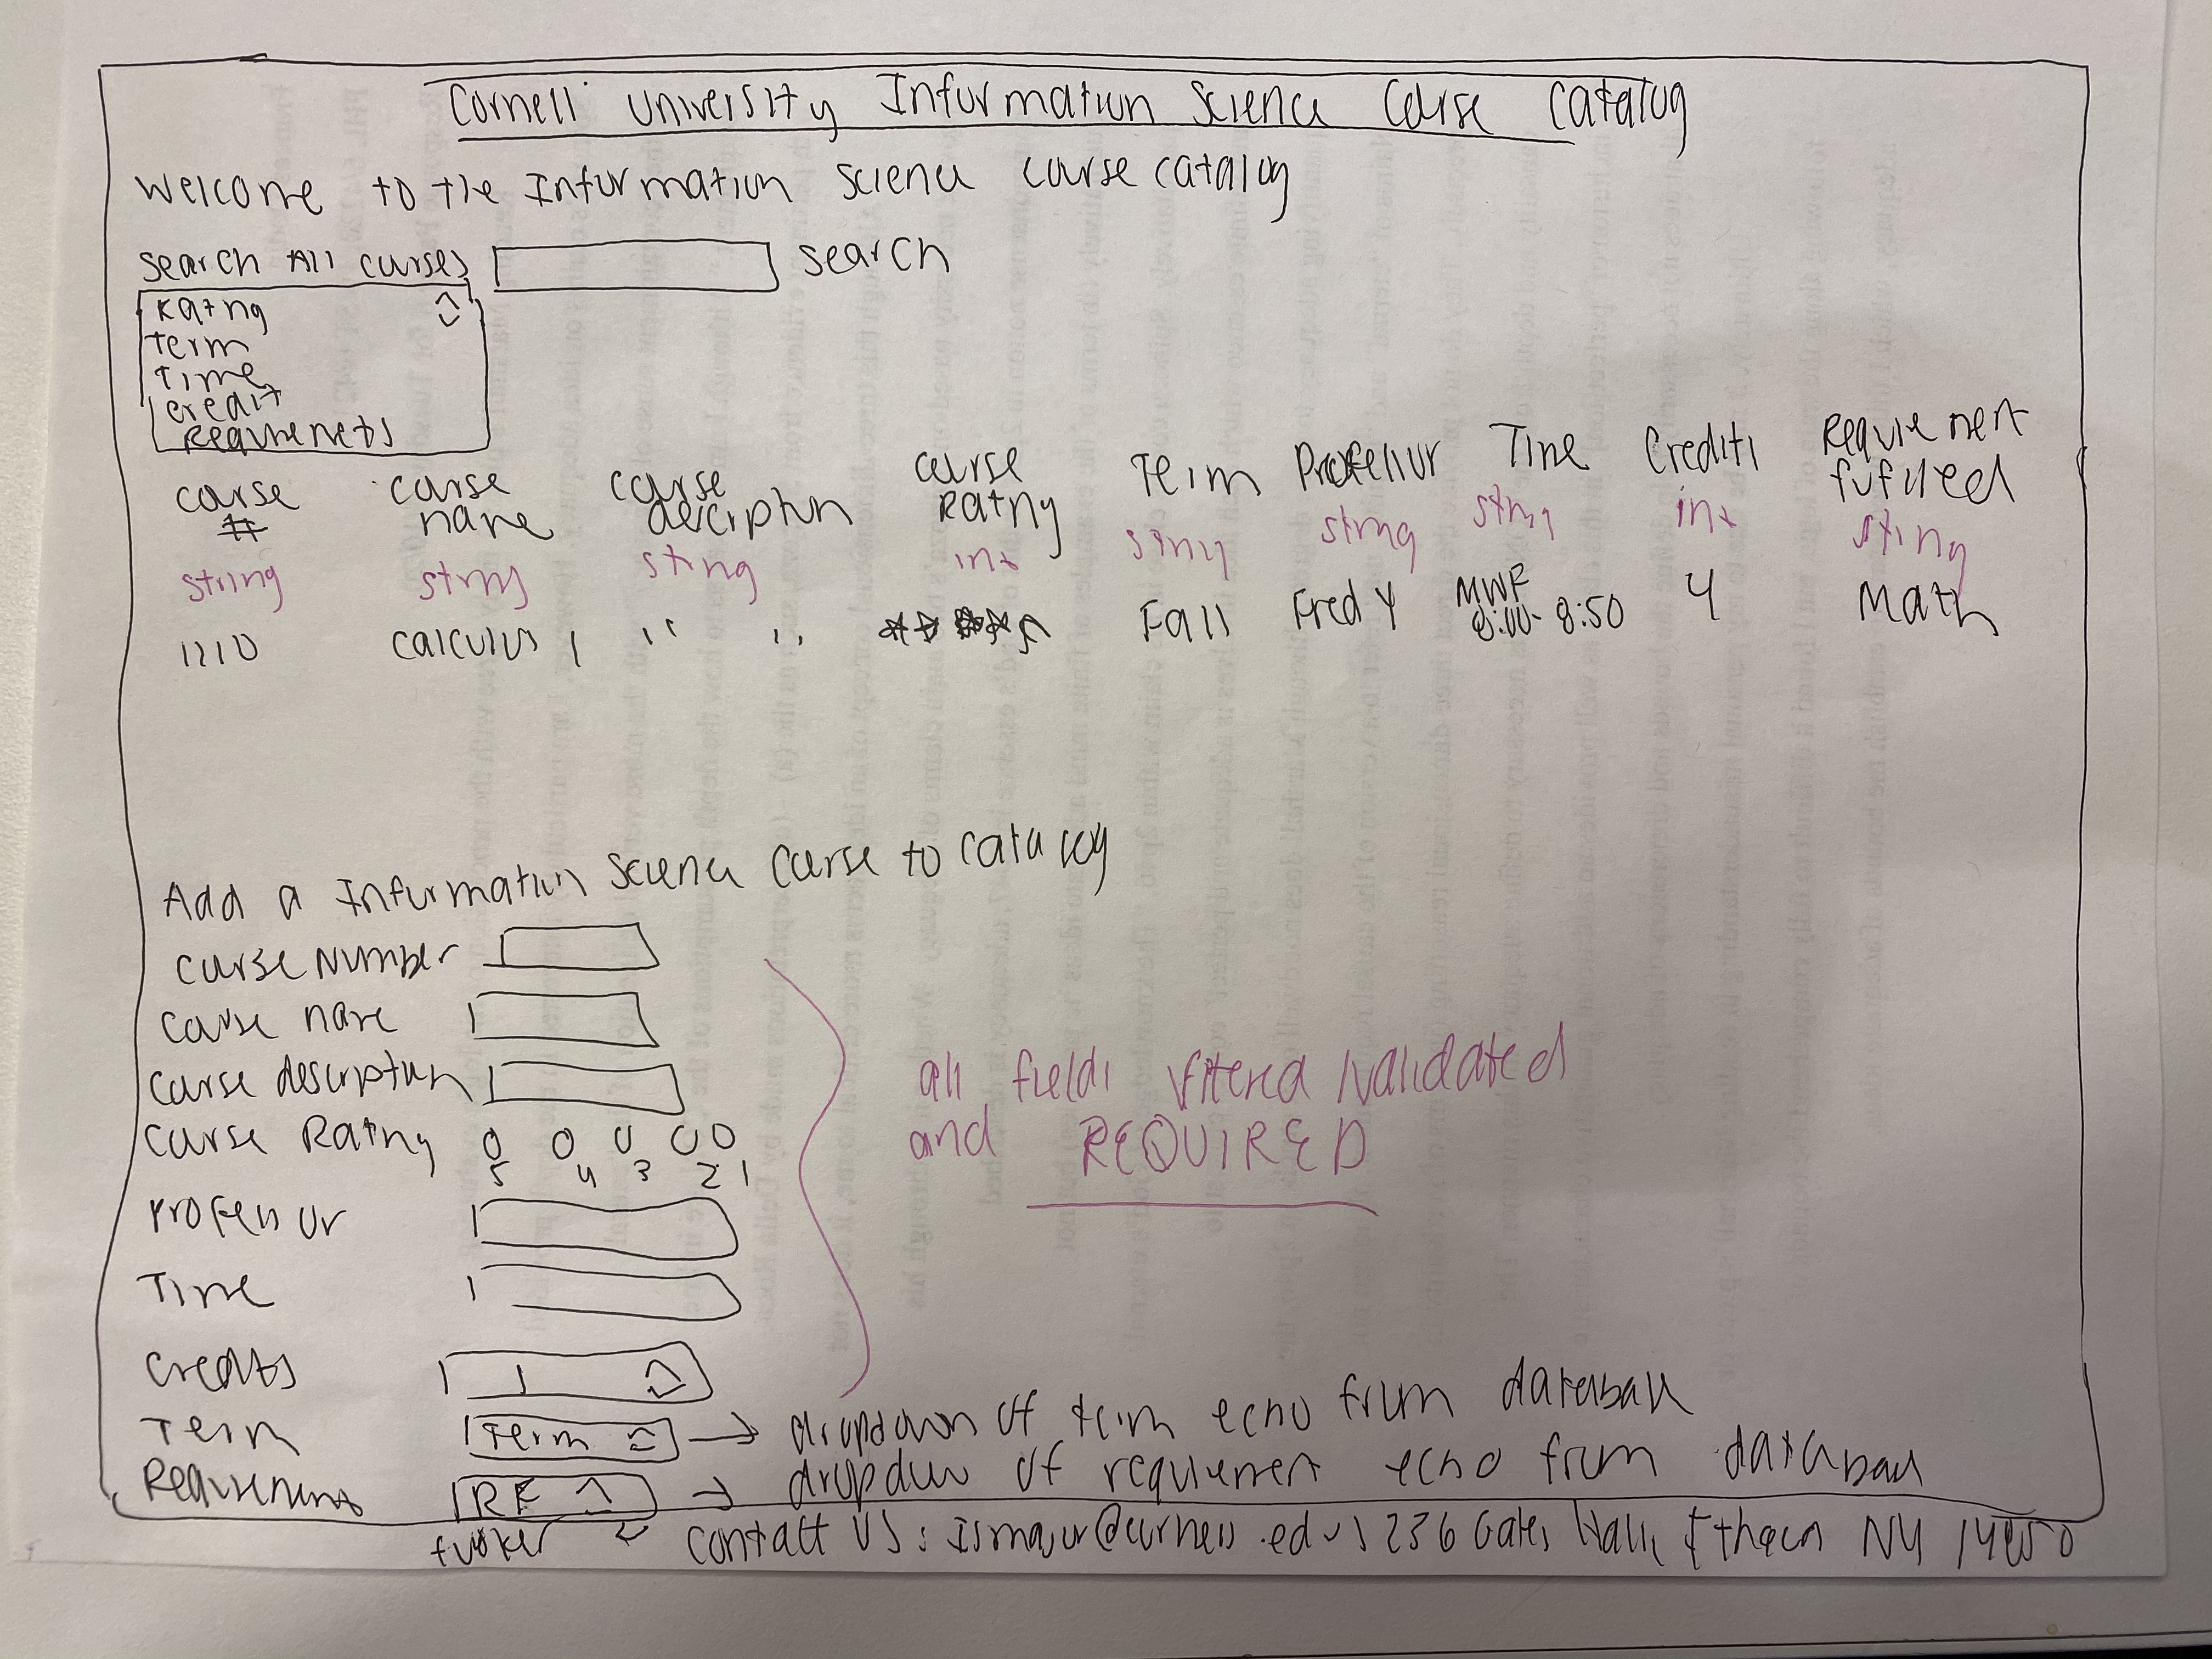 Cornell University Information Science Course Catalog
Welcome to the Information Science course catalog
Search All courses search
Rating
Term
Time
credit
Requirements
course # course name course description course Rating Term Professor Time Credits Requirement
string string string int string string string int string
1110 calculus 1 " " Fall Fred Y MWF 8:50 4 Math
Add a Information Science Course to catalog
Course Number
Course name
Course description
Course Rating
5 4 3 2 1
Professor
Time
Credits 1
Term Term → dropdown of term echo from database
Requirement RF → dropdown of requirement echo from database
all fields filtered validated
and REQUIRED
footer Contact US: Ismajor@cornell.edu 236 Gates Hall, Ithaca NY 14850